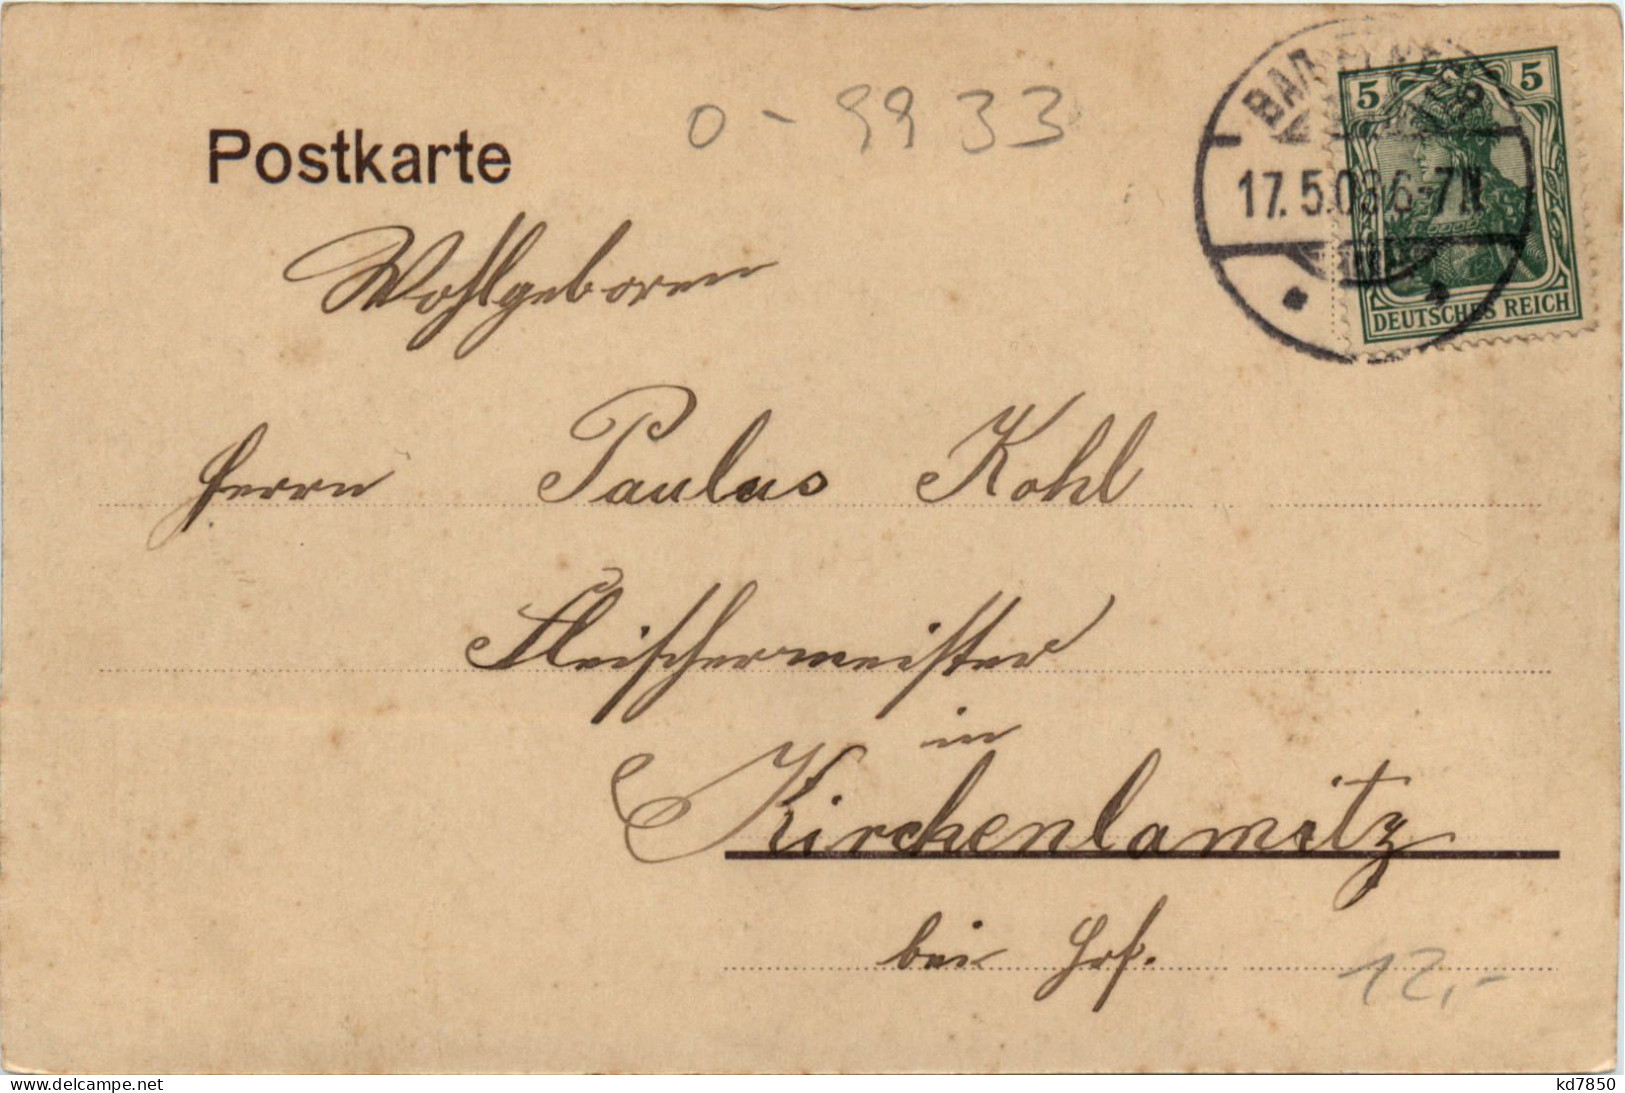 0-9933
5 5
17.5.03.6-7N
DEUTSCHES REICH
Postkarte
Wohlgeboren
Herrn Paulus Kohl
Fleischermeister
in
Kirchenlamitz
bei Hof.
12,-
www.delcampe.net
kd7850